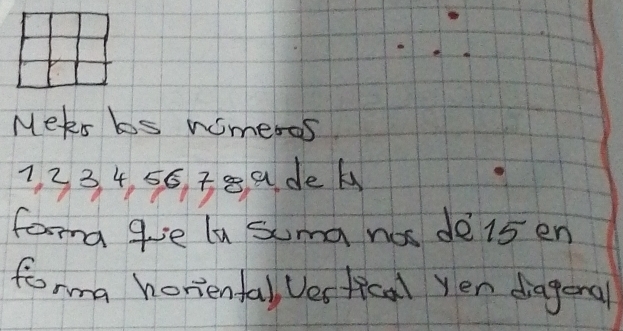 Meter los números
1, 2, 3, 4, 5 6, 7, 8, 9 de la
forma que la suma nos dé 15 en
forma horiental, Vertical y en diagonal